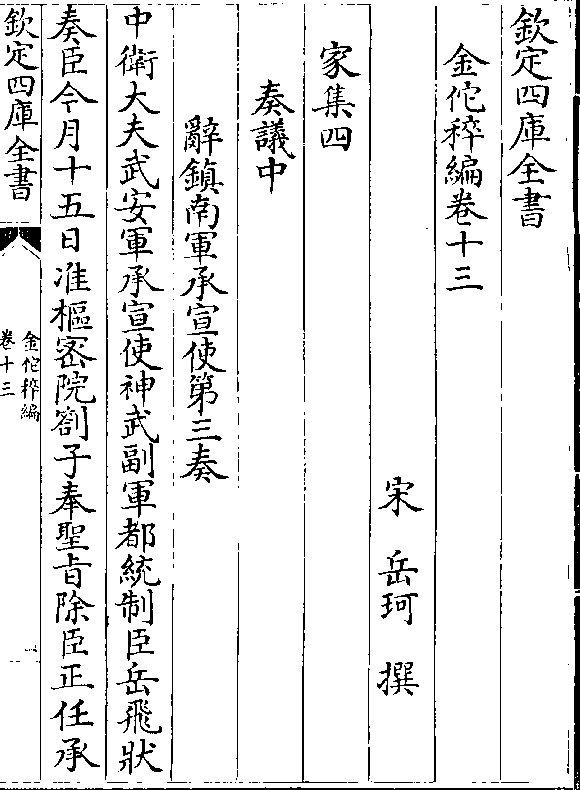 欽定四庫全書
金佗稡編卷十三
宋 岳珂 撰
家集四
奏議中
辭鎮南軍承宣使第三奏
中衛大夫武安軍承宣使神武副軍都統制臣岳飛狀
奏臣今月十五日准樞密院劄子奉聖旨除臣正任承
欽定四庫全書
金佗稡編
卷十三
一